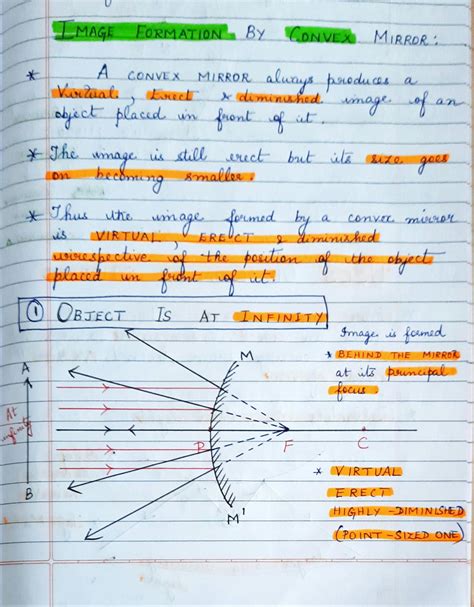 IMAGE FORMATION BY CONVEX MIRROR:
* A CONVEX MIRROR always produces a
Virtual, Erect & diminished image of an
object placed in front of it.
* The image is still erect but its size goes
on becoming smaller.
* Thus the image formed by a convex mirror
is VIRTUAL, ERECT & diminished
irrespective of the position of the object
placed in front of it.
① OBJECT IS AT INFINITY
Image is formed
* BEHIND THE MIRROR
at its principal
focus.
M
A
At
infinity
B
P
F
C
M'
* VIRTUAL
ERECT
HIGHLY-DIMINISHED
(POINT-SIZED ONE)